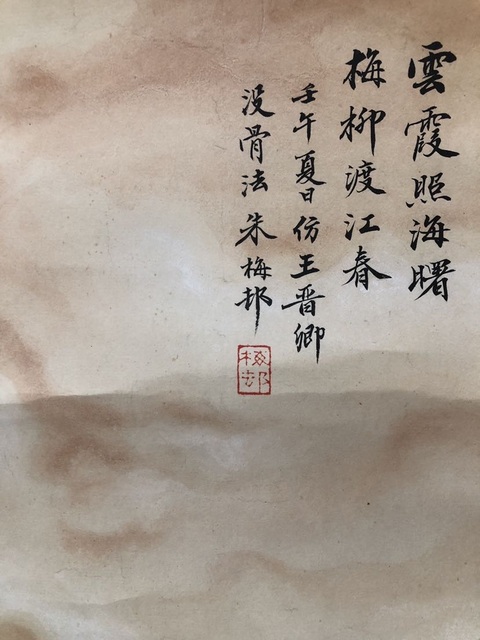 雲霞照海曙
梅柳渡江春
壬午夏日仿王晋卿
没骨法朱梅邨
梅邨